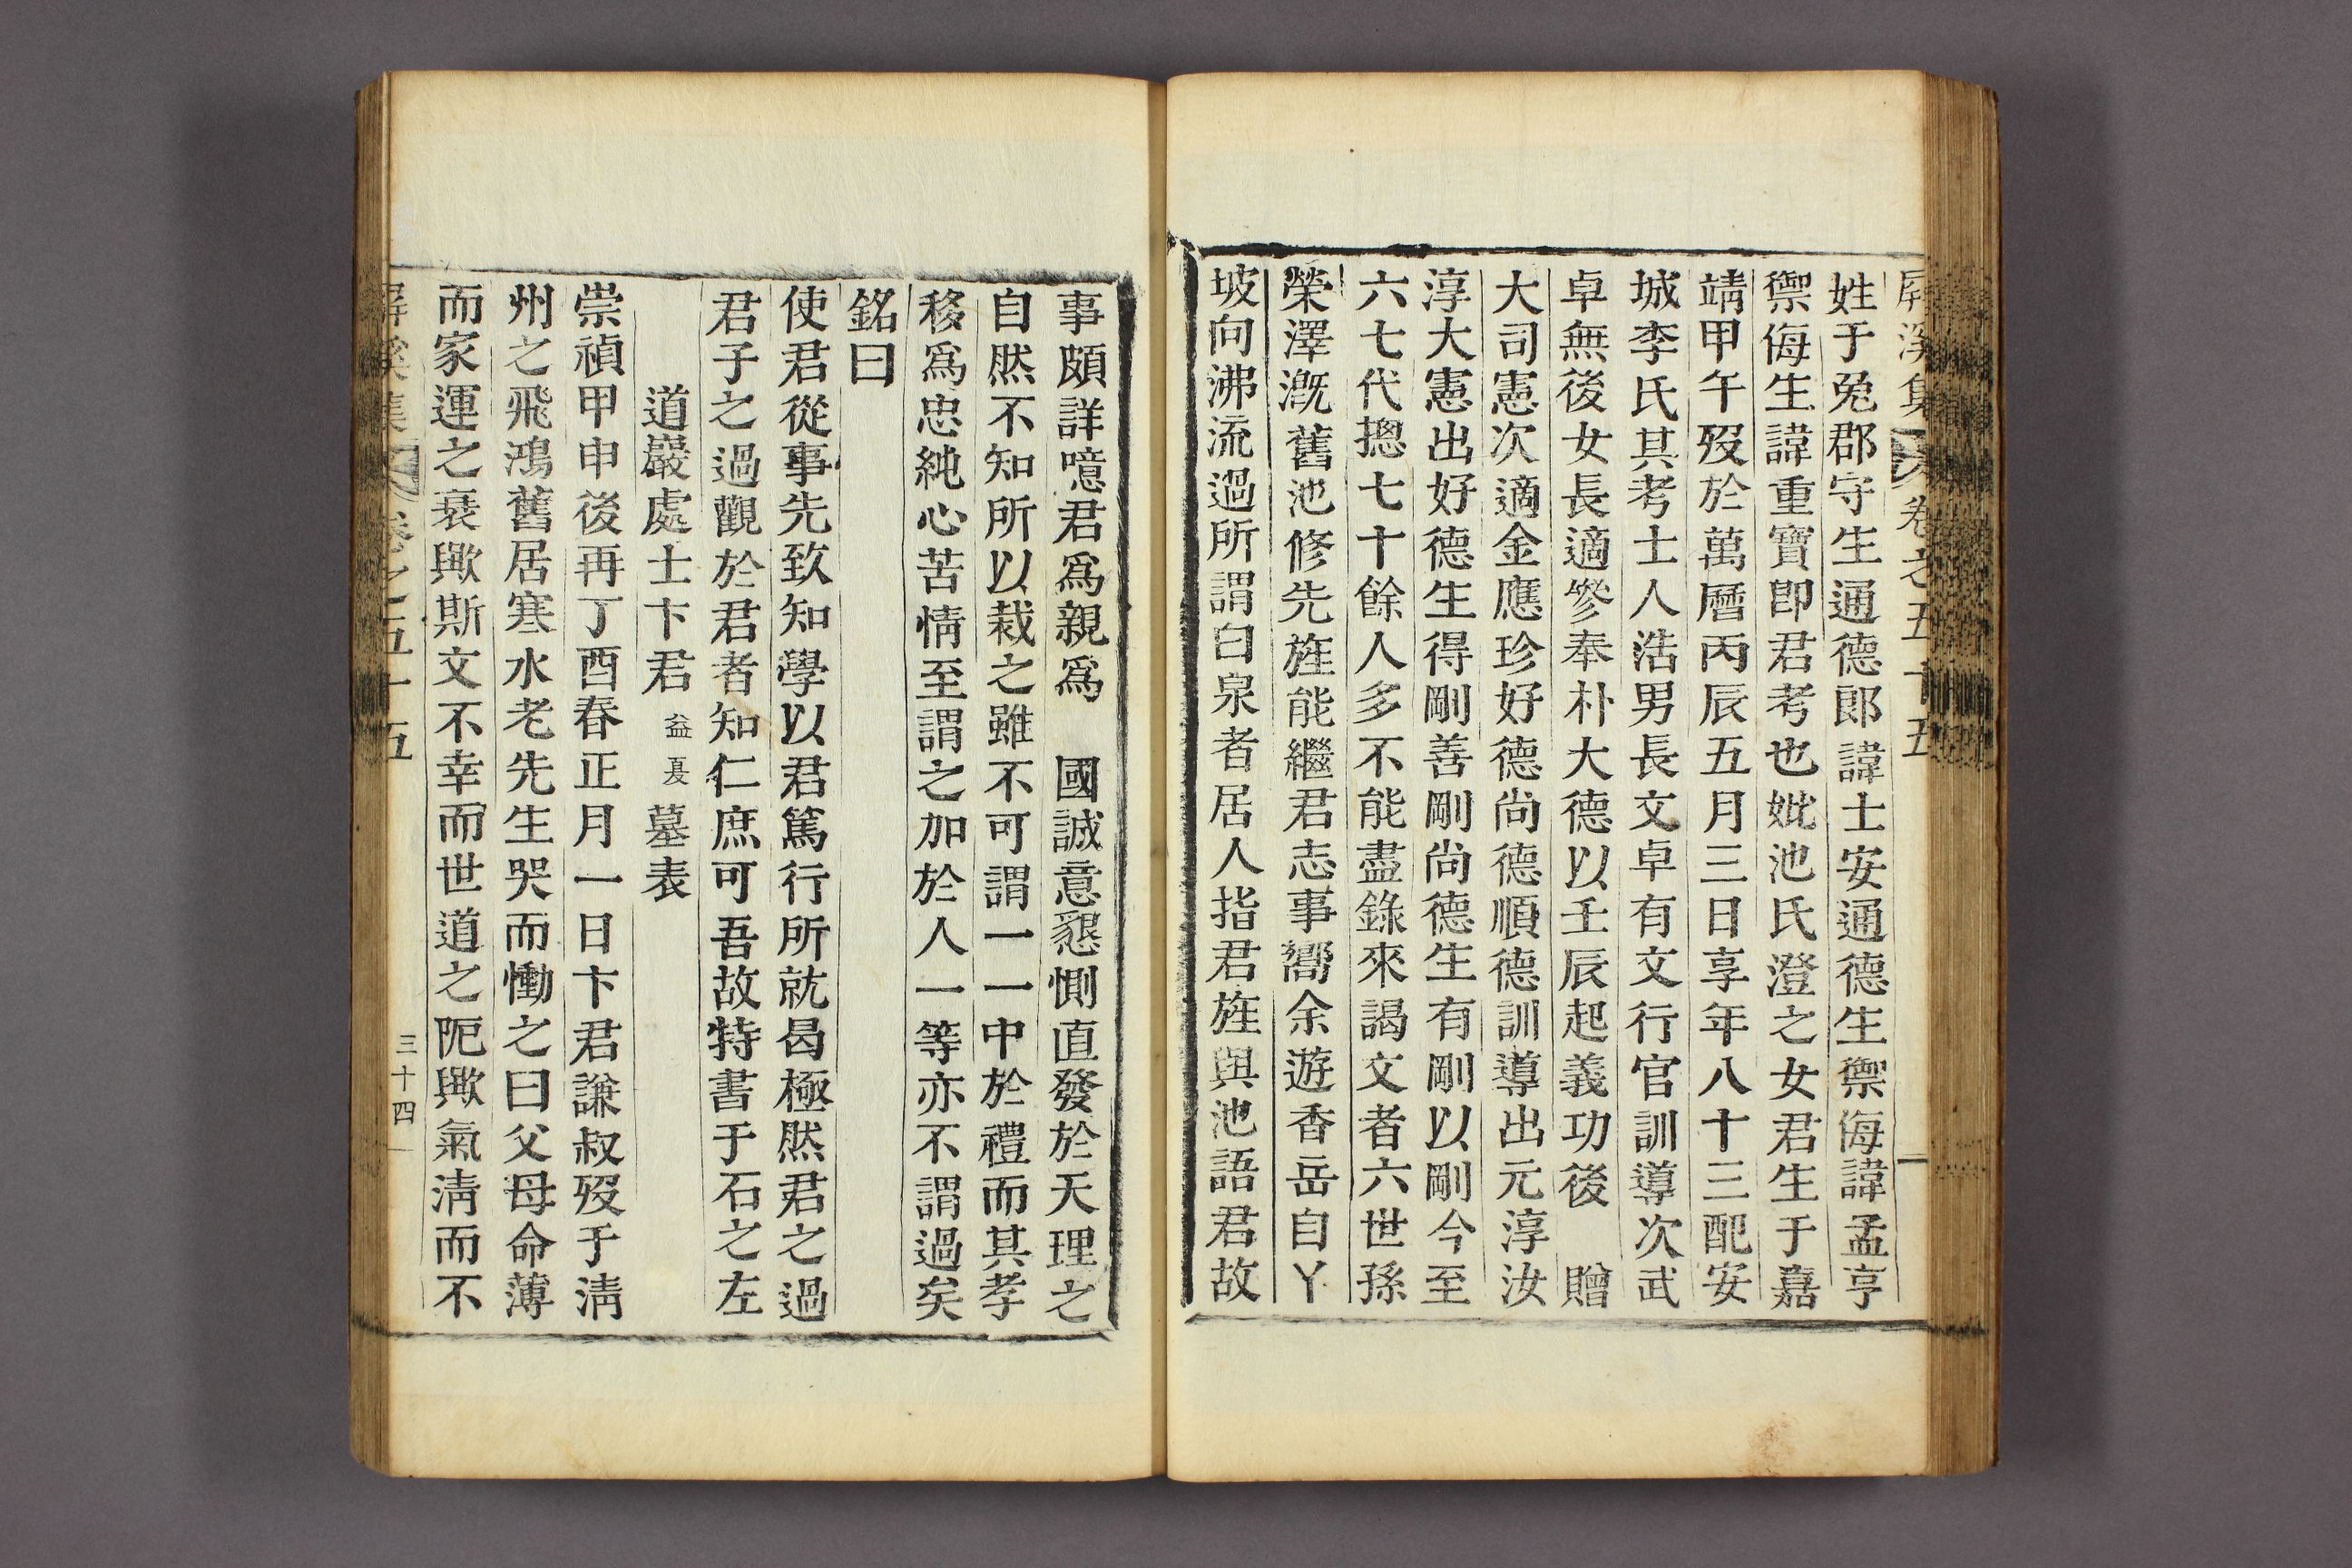 屛溪集 卷之五十五
姓于兔郡守生通德郎諱士安通德生禦侮諱孟亨
禦侮生諱重寶卽君考也妣池氏澄之女君生于嘉
靖甲午歿於萬曆丙辰五月三日享年八十三配安
城李氏其考士人浩男長文卓有文行官訓導次武
卓無後女長適參奉朴大德以壬辰起義功後 贈
大司憲次適金應珍好德尚德順德訓導出元淳汝
淳大憲出好德生得剛善剛尚德生有剛以剛今至
六七代摠七十餘人多不能盡錄來謁文者六世孫
榮澤漑舊池修先旌能繼君志事嚮余遊香岳自丫
坡向沸流過所謂白泉者居人指君旌與池語君故
事頗詳噫君爲親爲 國誠意懇惻直發於天理之
自然不知所以裁之雖不可謂一一中於禮而其孝
移爲忠純心苦情至謂之加於人一等亦不謂過矣
銘曰
使君從事先致知學以君篤行所就曷極然君之過
君子之過觀於君者知仁庶可吾故特書于石之左
道巖處士卞君益晸墓表
崇禎甲申後再丁酉春正月一日卞君謙叔歿于淸
州之飛鴻舊居寒水老先生哭而慟之曰父母命薄
而家運之衰歟斯文不幸而世道之阨歟氣淸而不
屛溪集 卷之五十五 三十四